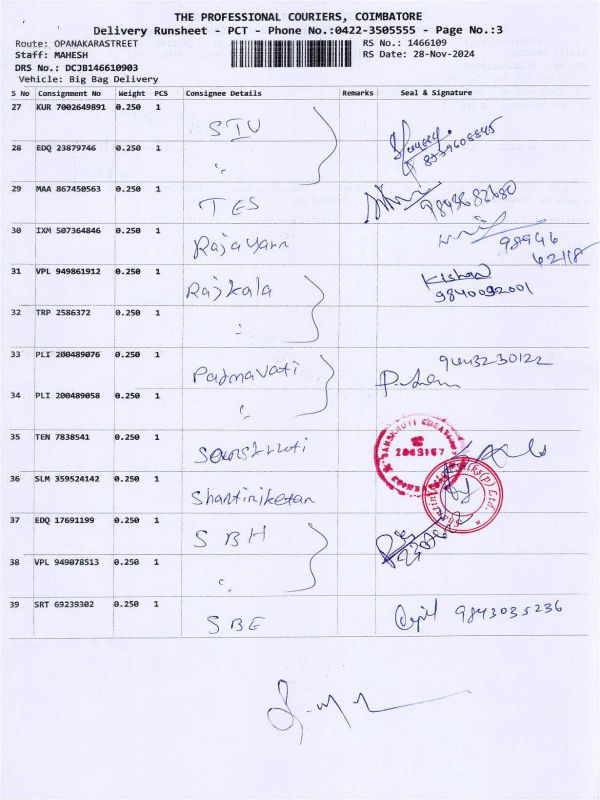 THE PROFESSIONAL COURIERS, COIMBATORE
Delivery Runsheet - PCT - Phone No.:0422-3505555 - Page No.:3
Route: OPANAKARASTREET RS No.: 1466109
Staff: MAHESH RS Date: 28-Nov-2024
DRS No.: DCJB146610903
Vehicle: Big Bag Delivery
S No Consignment No Weight PCS Consignee Details Remarks Seal & Signature
27 KUR 7002649891 0.250 1 SIU
28 EDQ 23879746 0.250 1
29 MAA 867450563 0.250 1 TES
30 IXM 507364846 0.250 1 Rajayarn 98946
62118
31 VPL 949861912 0.250 1 Rajkala Kishan
9840092001
32 TRP 2586372 0.250 1
33 PLI 200489076 0.250 1 Padmavati 9443230122
34 PLI 200489058 0.250 1
35 TEN 7838541 0.250 1 2843167
36 SLM 359524142 0.250 1 Shantiniketan
37 EDQ 17691199 0.250 1 SBH
38 VPL 949078513 0.250 1
39 SRT 69239302 0.250 1 SBE 9843035236